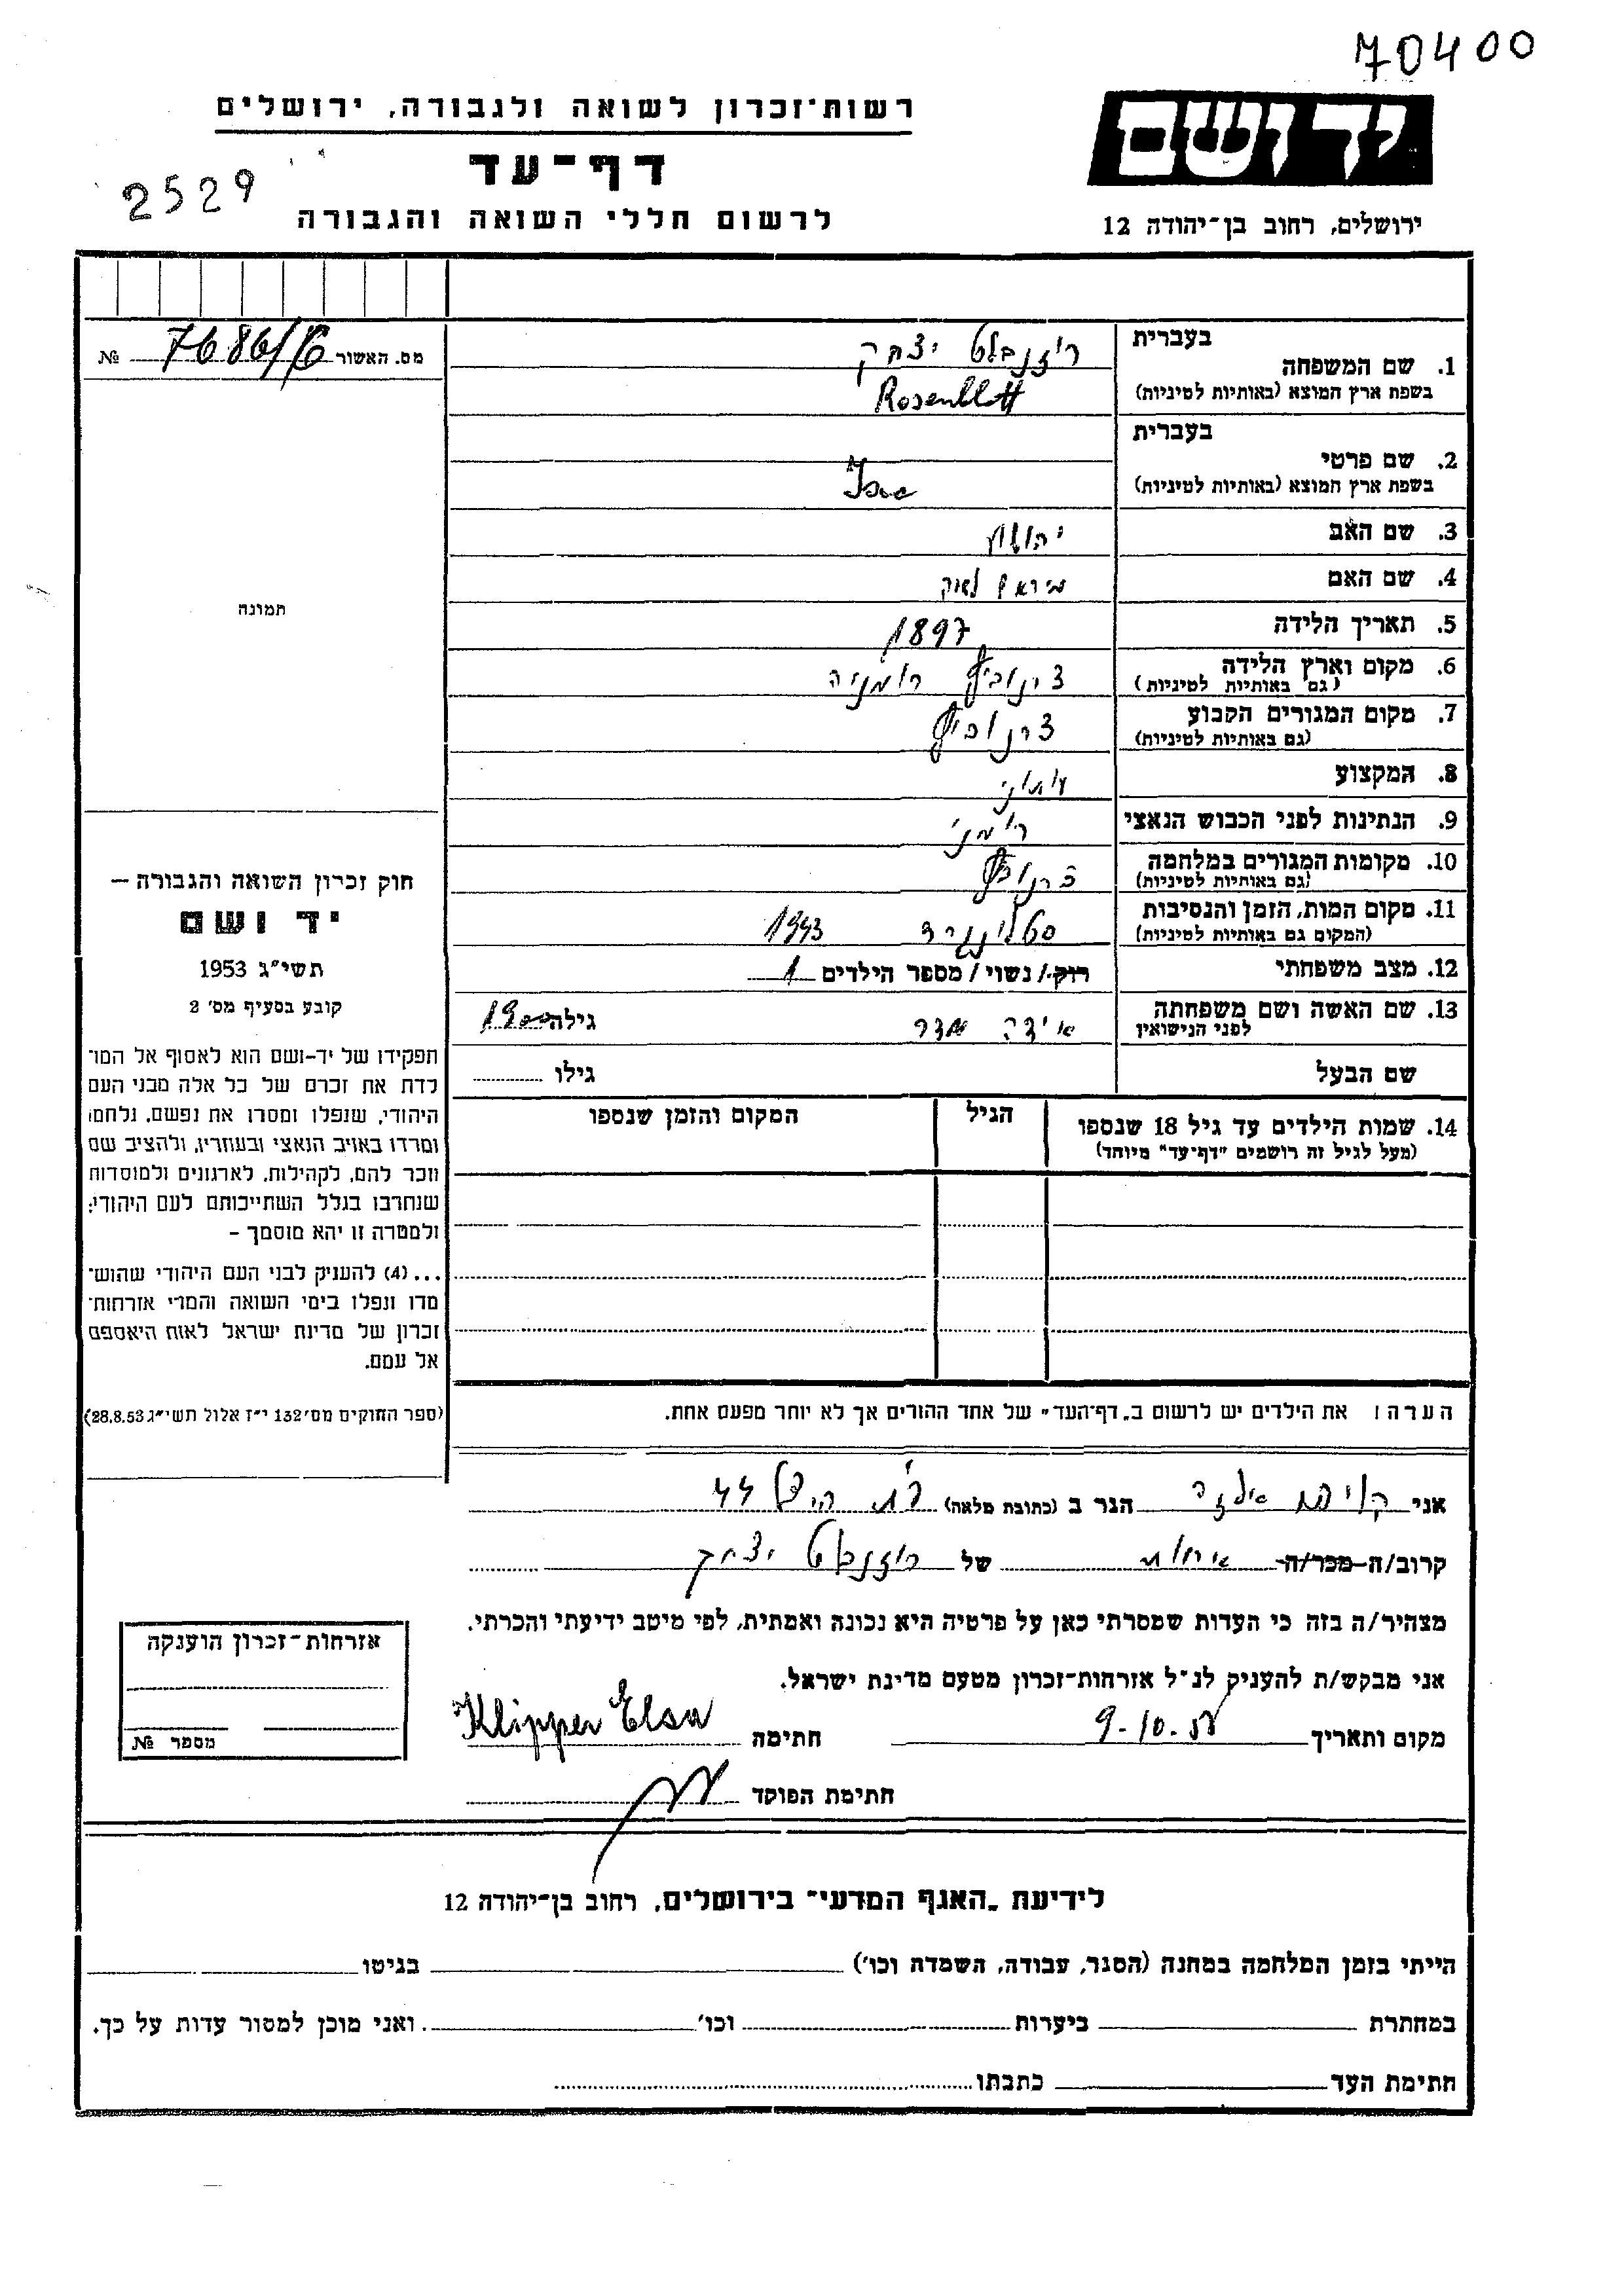 70400
רשות־זכרון לשואה ולגבורה, ירושלים
דף-עד
2529
לרשום חללי השואה והגבורה
יד ושם
ירושלים, רחוב בן־יהודה 12
מס. האשור 7686/16 №
תמונה
חוק זכרון השואה והגבורה —
יד ושם
תשי״ג 1953
קובע בסעיף מס׳ 2
תפקידו של יד-ושם הוא לאסוף אל המו־
לדת את זכרם של כל אלה מבני העם
היהודי, שנפלו ומסרו את נפשם, נלחמו
ומרדו באויב הנאצי ובעוזריו, ולהציב שם
וזכר להם, לקהילות, לארגונים ולמוסדות
שנחרבו בגלל השתייכותם לעם היהודי;
ולמטרה זו יהא מוסמך —
...(4) להעניק לבני העם היהודי שהוש־
מדו ונפלו בימי השואה והמרי אזרחות־
זכרון של מדינת ישראל לאות היאספם
אל עמם.
(ספר החוקים מס׳ 132 י״ז אלול תשי״ג 28.8.53)
בעברית
1. שם המשפחה רוזנבלט יצחק
בשפת ארץ המוצא (באותיות לטיניות) Rosenblatt
בעברית
2. שם פרטי
בשפת ארץ המוצא (באותיות לטיניות)
3. שם האב
4. שם האם
5. תאריך הלידה 1897
6. מקום וארץ הלידה צרנוביץ רומניה
(גם באותיות לטיניות)
7. מקום המגורים הקבוע צרנוביץ
(גם באותיות לטיניות)
8. המקצוע
9. הנתינות לפני הכבוש הנאצי רומני
10. מקומות המגורים במלחמה צרנוביץ
(גם באותיות לטיניות)
11. מקום המות, הזמן והנסיבות סטלינגרד 1943
(המקום גם באותיות לטיניות)
12. מצב משפחתי רוק / נשוי / מספר הילדים 1
13. שם האשה ושם משפחתה אידה אדר גילה 1900
לפני הנישואין
שם הבעל גילו
14. שמות הילדים עד גיל 18 שנספו הגיל המקום והזמן שנספו
(מעל לגיל זה רושמים ״דף־עד״ מיוחד)
הערה: את הילדים יש לרשום ב„דף־העד״ של אחד ההורים אך לא יוחר מפעם אחת.
אני קליפר אלזה הגר ב (כתובת מלאה) 44
קרוב/ה מכר/ה אחות של רוזנבלט יצחק
מצהיר/ה בזה כי העדות שמסרתי כאן על פרטיה היא נכונה ואמתית, לפי מיטב ידיעתי והכרתי.
אני מבקש/ת להעניק לנ״ל אזרחות־זכרון מטעם מדינת ישראל.
מקום ותאריך 9-10. חתימה Klipper Elsa
חתימת הפוקד
אזרחות־זכרון הוענקה
מספר №
לידיעת „האגף המדעי״ בירושלים, רחוב בן־יהודה 12
הייתי בזמן המלחמה במחנה (הסגר, עבודה, השמדה וכו׳) בגיטו
במחתרת ביערות וכו׳ . ואני מוכן למסור עדות על כך.
חתימת העד כתבתו